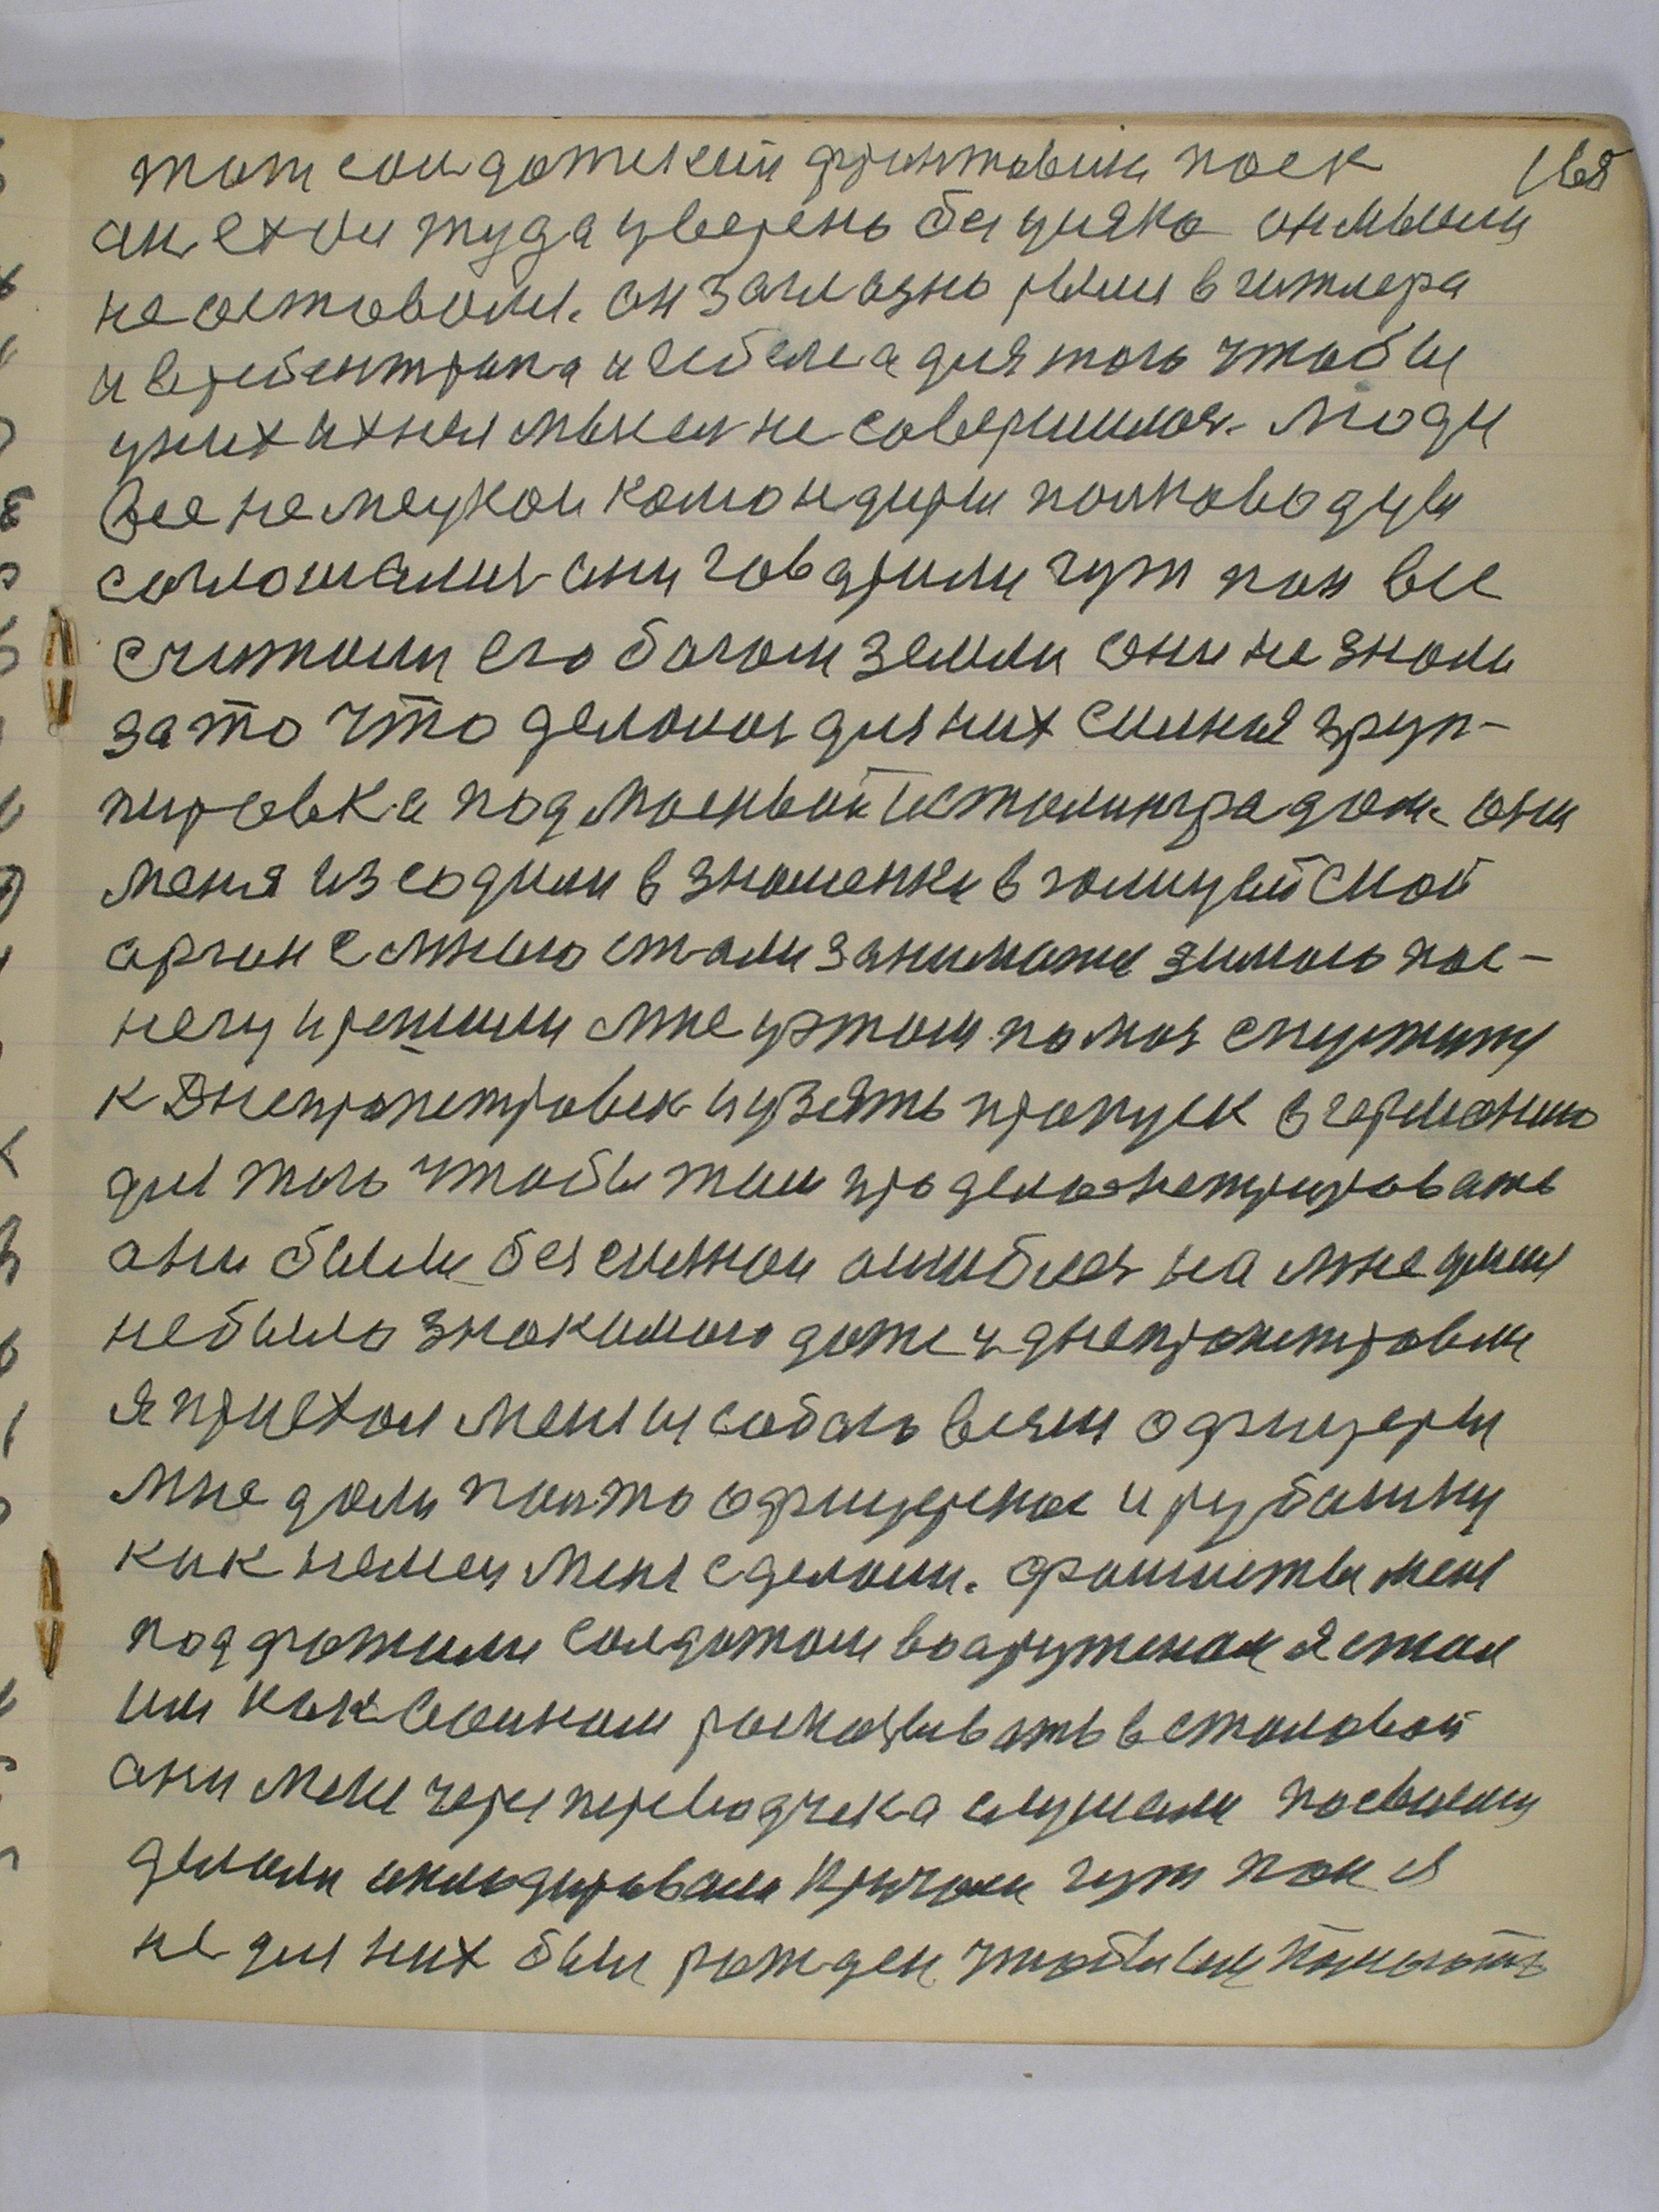 тот солдатский фронтовик поек 168
он ехал туда уверень без уияка он мысли
не оставоли. он заглазно рыли в гитлера
и врибентропа и гебелса для того чтобы
уних ихняя мысел не совершилас. люди
все немецкои командиры полководцы
соглошались они говорили гут пан все
считоли его богом земли они не знали
за то что делолос для них силная груп-
пировка под Москвой и сталинградом. они
меня изводили в знаменки в полицейской
орган с мною стали заниматся зимою пос-
негу и решили мне у этом помоч спустить
к Днепропетровск и узять пропуск в германию
для того чтобы там продемонстрировать
они были без силнои ошиблис на мне
небыло знакимого даже и днепропетровск
я приехал мены собою взяли офицеры
мне дали палто офицерское и рубашку
как немец меня сделали. фашисты меня
под ружили солдатом вооруженом я стал
им как воином росказывать в столовой
они меня через переводчека слушали посвоему
делали оплодировали кричали гут пан я
не для них был рожден чтобы им помогать